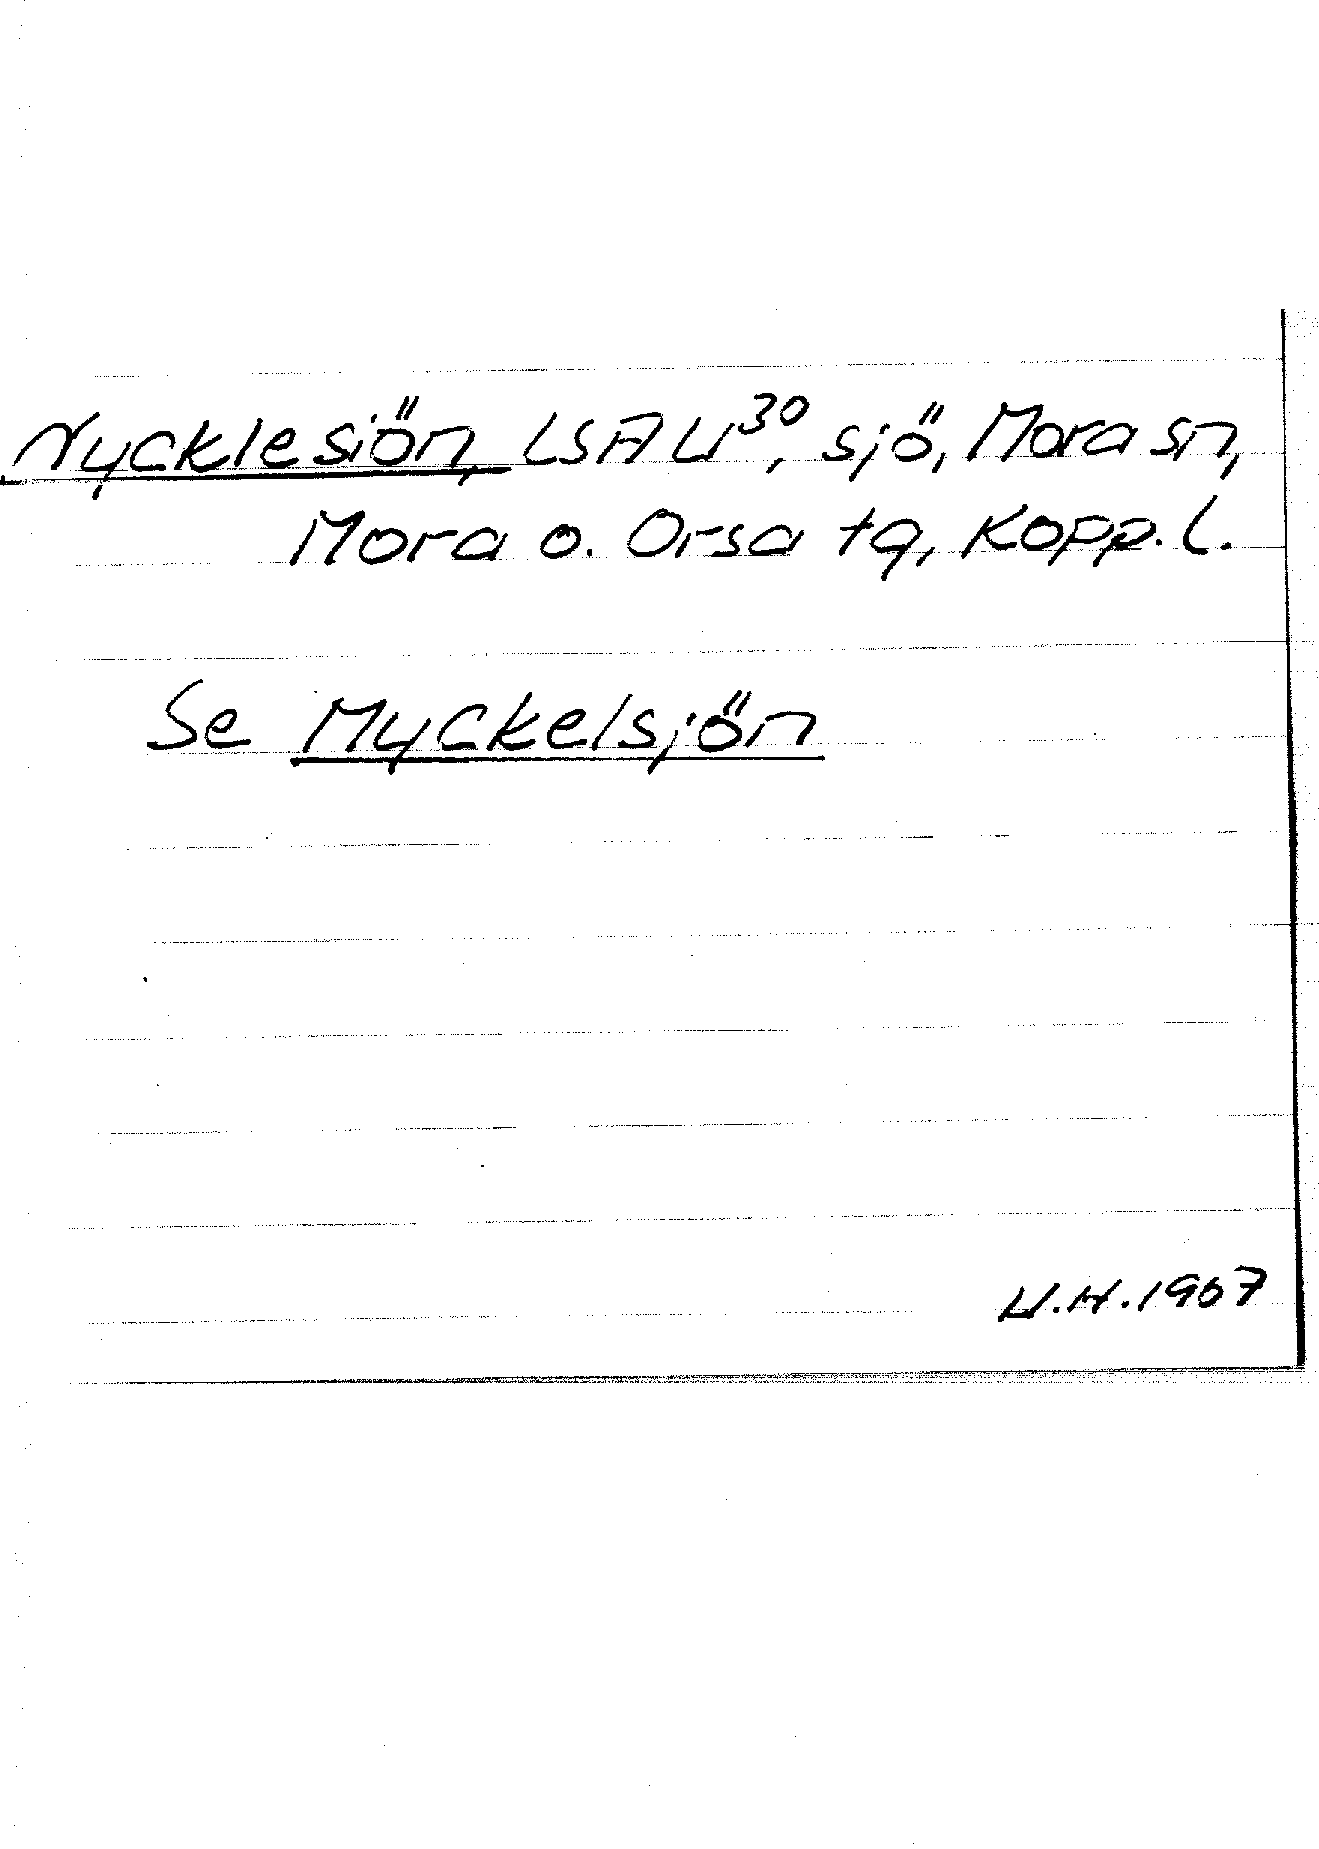 Nycklesiön, LSA U³⁰, sjö, Mora sn,
Mora o. Orsa tg, Kopp. l.
Se Myckelsjön
U.H. 1967